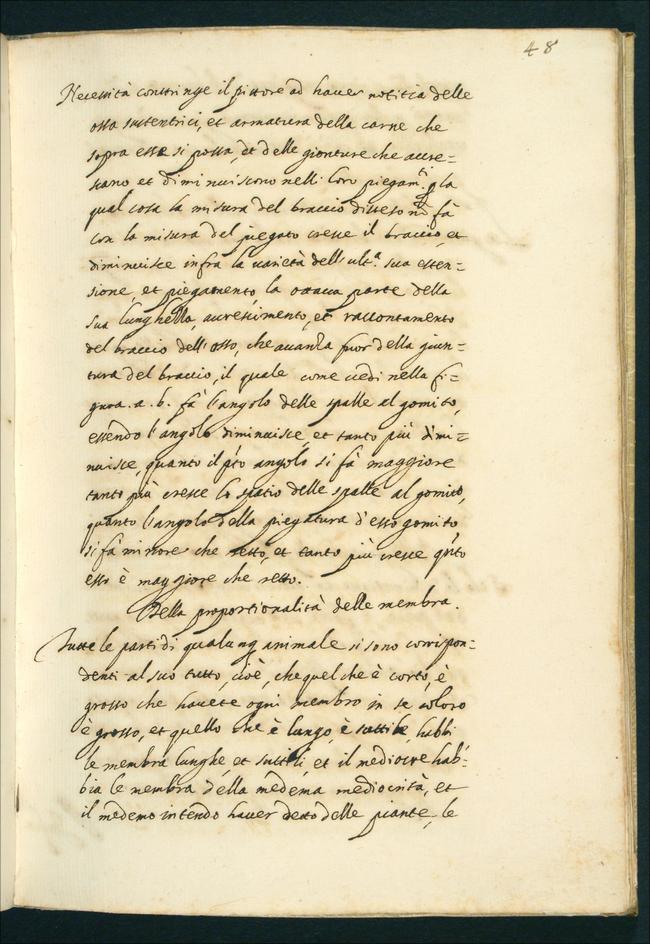 48
Necessità constringe il pittore ad haver notitia delle
ossa sustentrici, et armatura della carne che
sopra esse si possa, et delle gionture che accre-
scano et diminuiscono nelli loro piegam.ti p la
qual cosa la misura del braccio disteso nõ fà
con la misura del piegato cresce il braccio, et
diminuisce infra la varietà dell'ult.a sua esten-
sione, et piegamento la ottava parte della
sua lunghezza, accrescimento, et raccontamento
del braccio dell'osso, che avanza fuor della giun-
tura del braccio, il quale come vedi nella fi-
gura .a. b. fà l'angolo delle spalle al gomito,
essendo l'angolo diminuisce, et tanto più dimi-
nuisce, quanto il p.to angolo si fà maggiore
tanto più cresce lo spatio delle spalle al gomito,
quanto l'angolo della piegatura d'esso gomito
si fà minore che retto, et tanto più cresce q.to
esso è maggiore che retto.
Della proportionalità delle membra.
Tutte le parti di qualunq animale si sono corrispon-
denti al suo tutto, cioè, che quel che è corto, è
grosso che havete ogni membro in se coloro
è grosso, et quello che è lungo, è suttile, habbi
le membra lunghe, et suttili, et il mediocre hab-
bia le membra della medema mediocrità, et
il medemo intendo haver detto delle piante, le